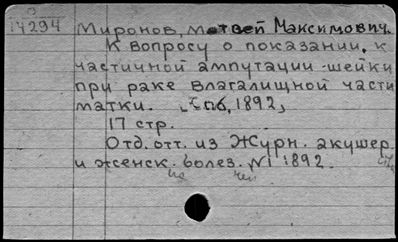 14294
Миронов, Матвей Максимович.
К вопросу о показании, к
частичной ампутации шейки
при раке влагалищной части
матки. [Спб, 1892,]
17 стр.
Отд. отт. из Журн. акушер.
и женск. болез. №1 1892.